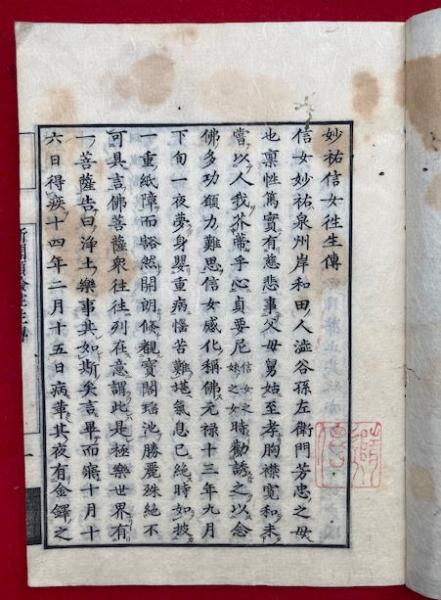 妙祐信女往生傳
信女妙祐泉州岸和田人澁谷孫左衛門芳忠之母
也禀性篤實有慈悲事父母舅姑至孝胸襟寛和未
嘗以人我芥蔕乎心貞要尼信女之妹之女時勸誘之以念
佛多功願力難思信女感化稱佛元禄十三年九月
下旬一夜夢身嬰重病惱苦難堪氣息已絶時如披
一重紙障而豁然開朗倏觀寶閣瑶池勝麗殊絶不
可具言佛菩薩衆往往列在意謂此是極樂世界有
一菩薩告曰淨土樂事其如斯矣言畢而寤十月十
六日得疾十四年二月十五日病革其夜有金鐸之